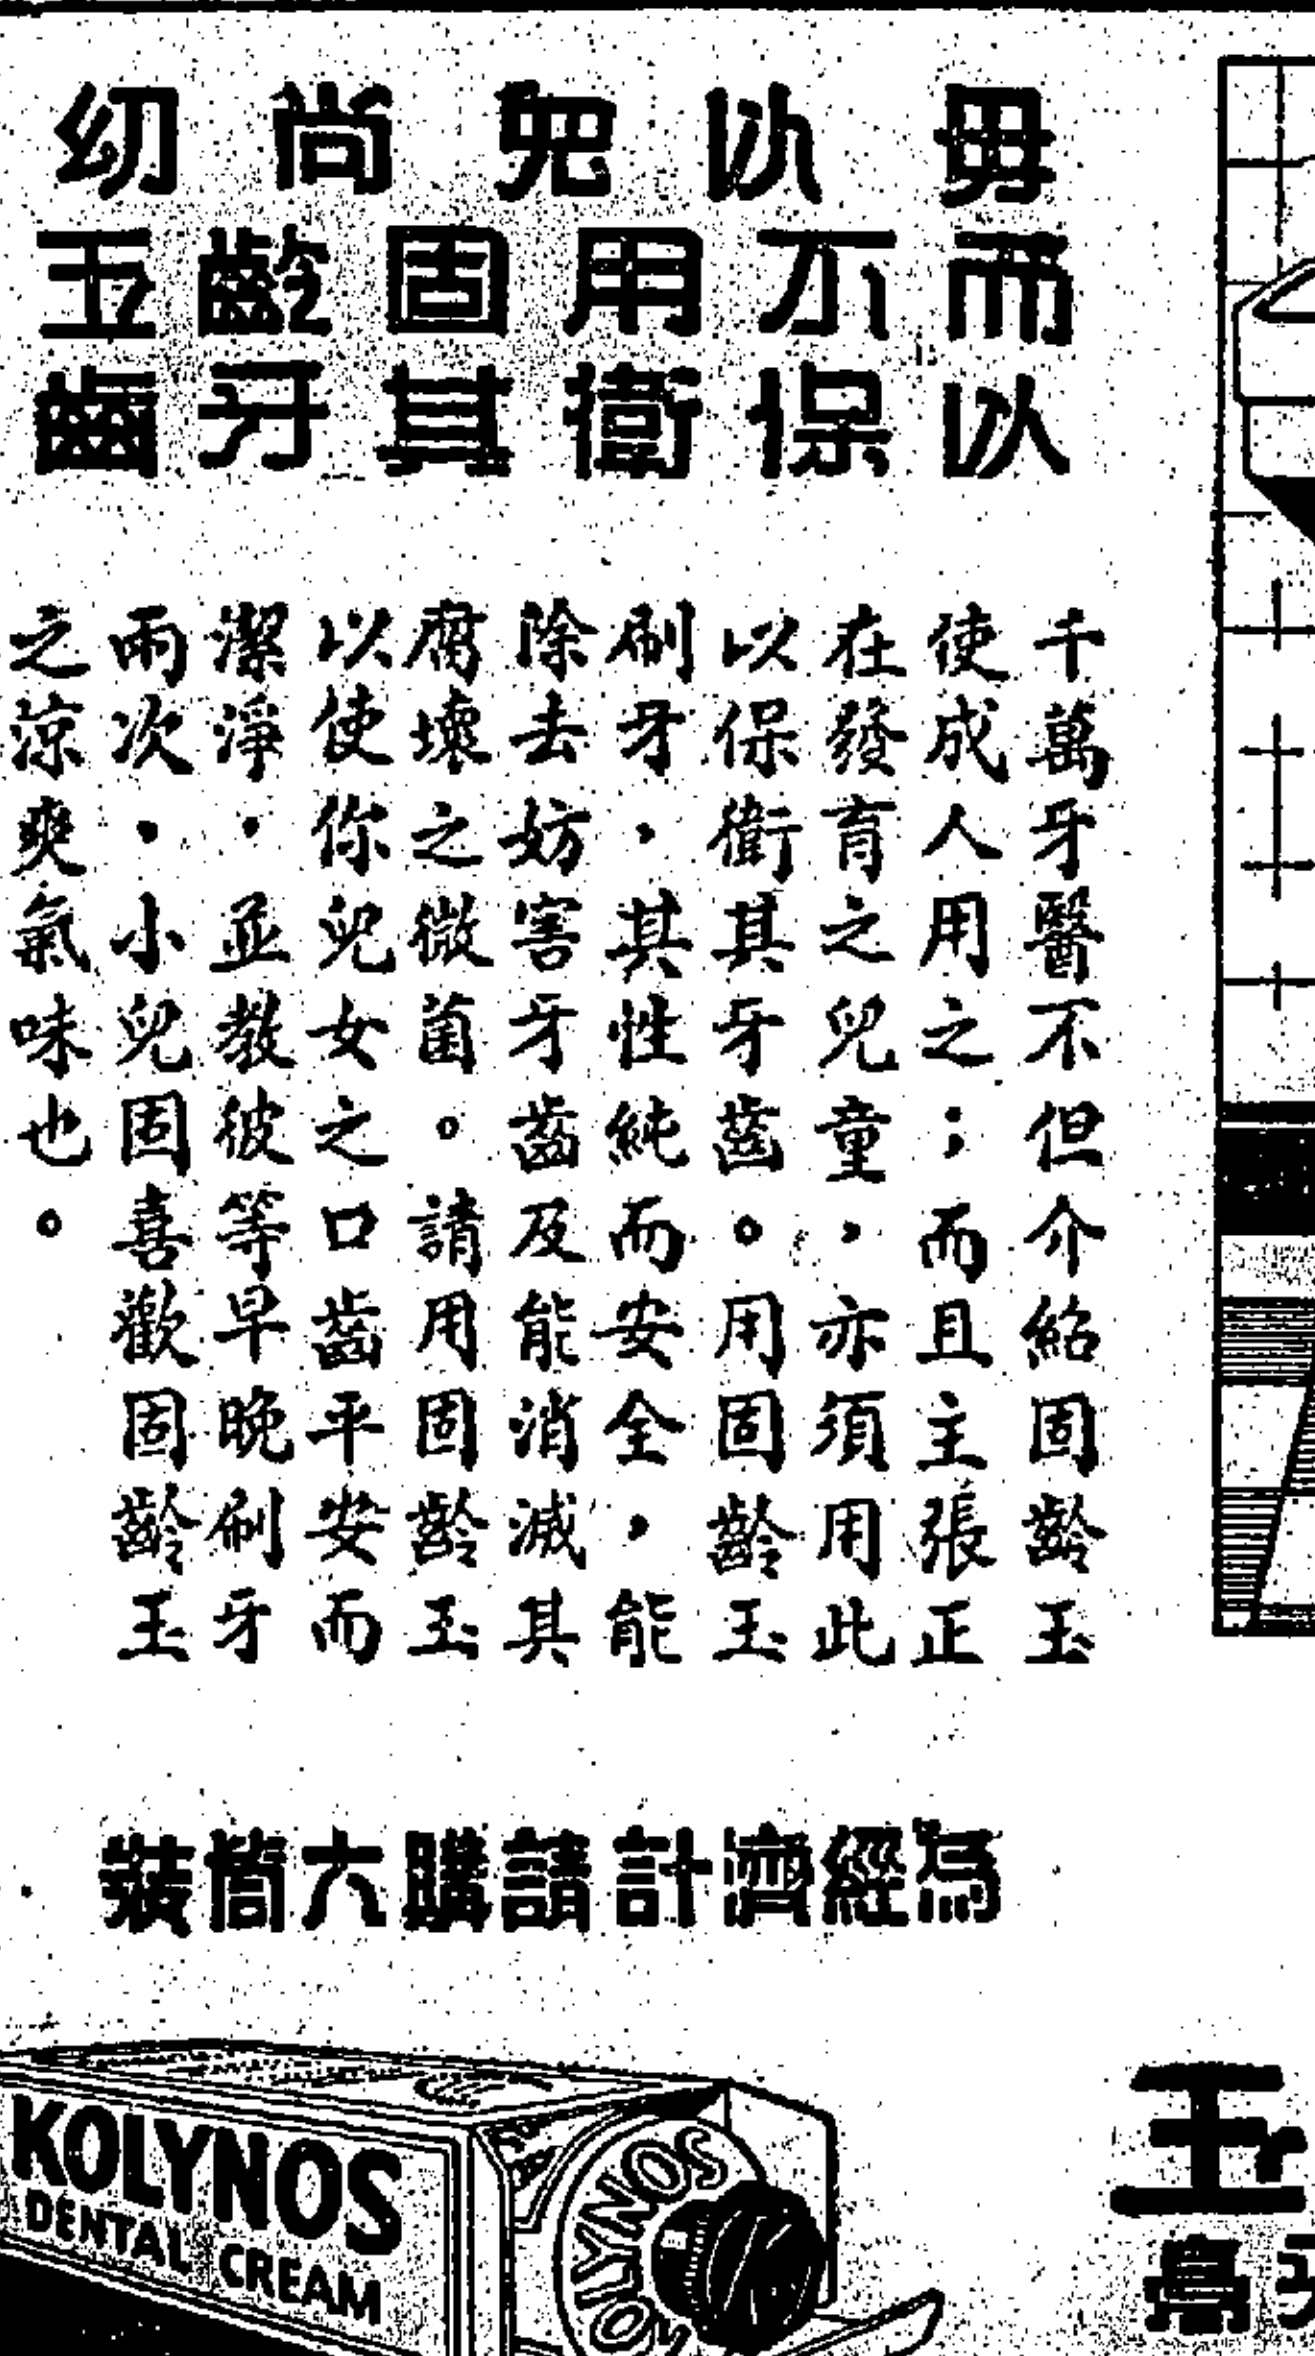 毋以兒尚幼
而不用固齡玉
以保衞其牙齒
千萬牙醫不但介紹固齡玉
使成人用之；而且主張正
在發育之兒童，亦須用此
以保衞其牙齒。用固齡玉
刷牙，其性純而安全，能
除去妨害牙齒及能消滅其
腐壞之微菌。請用固齡玉
以使你兒女之口齒平安而
潔淨，並教彼等早晚刷牙
兩次，小兒固喜歡固齡玉
之涼爽氣味也。
為經濟計請購六筒裝
KOLYNOS
DENTAL CREAM
KOLYNOS
玉